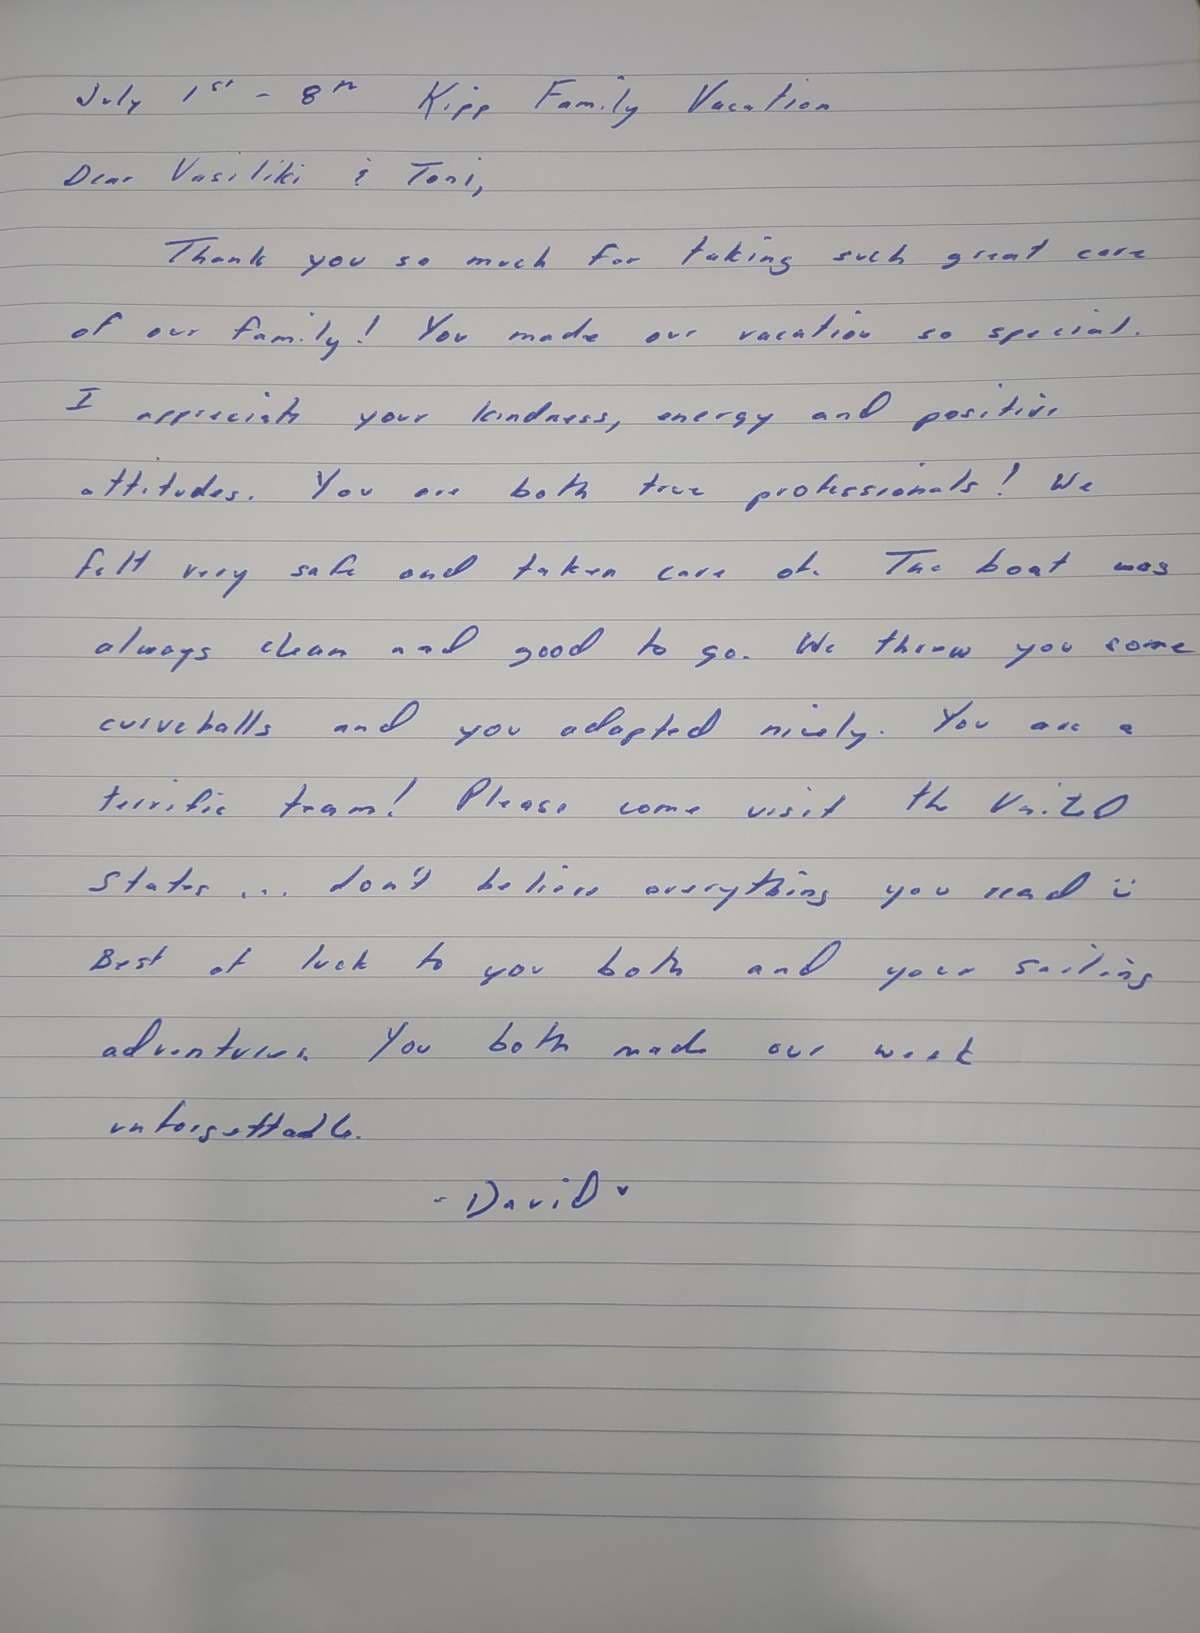 July 1st - 8th Kipp Family Vacation
Dear Vasiliki & Toni,
Thank you so much for taking such great care
of our family! You made our vacation so special.
I appreciate your kindness, energy and positive
attitudes. You are both true professionals! We
felt very safe and taken care of. The boat was
always clean and good to go. We threw you some
curveballs and you adapted nicely. You are a
terrific team! Please come visit the United
States ... don't believe everything you read ü
Best of luck to you both and your sailing
adventures. You both made our week
unforgettable.
- David ♥